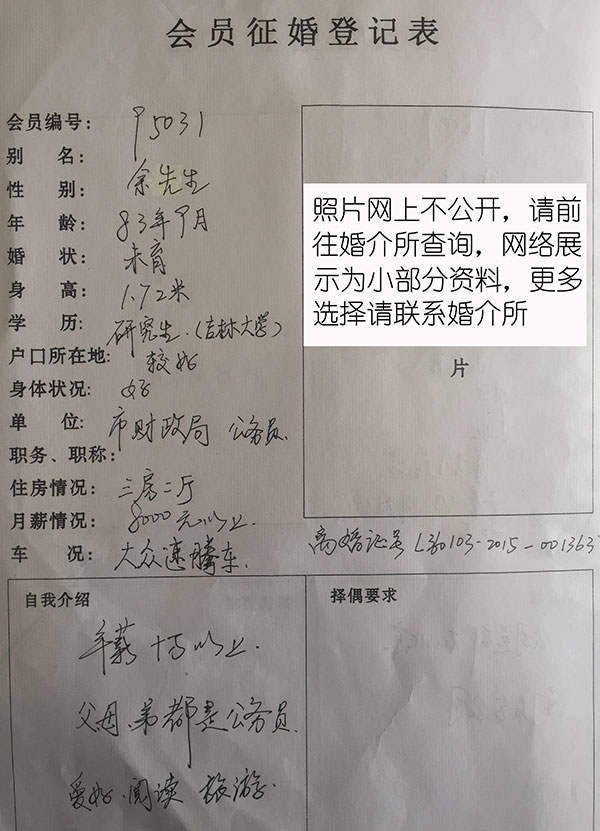 会员征婚登记表
会员编号： P5031
别 名： 余先生
性 别：
年 龄： 83年9月
婚 状： 未育
身 高： 1.72米
学 历： 研究生（吉林大学）
户口所在地： 较好
身体状况： 好
单 位： 市财政局 公务员.
职务、职称：
住房情况： 三房二厅
月薪情况： 8000元以上.
车 况： 大众速腾车.
照片网上不公开，请前
往婚介所查询，网络展
示为小部分资料，更多
选择请联系婚介所
片
离婚证号 L360103-2015-001363
自我介绍
年薪十万以上.
父母、弟都是公务员.
爱好.阅读 旅游.
择偶要求